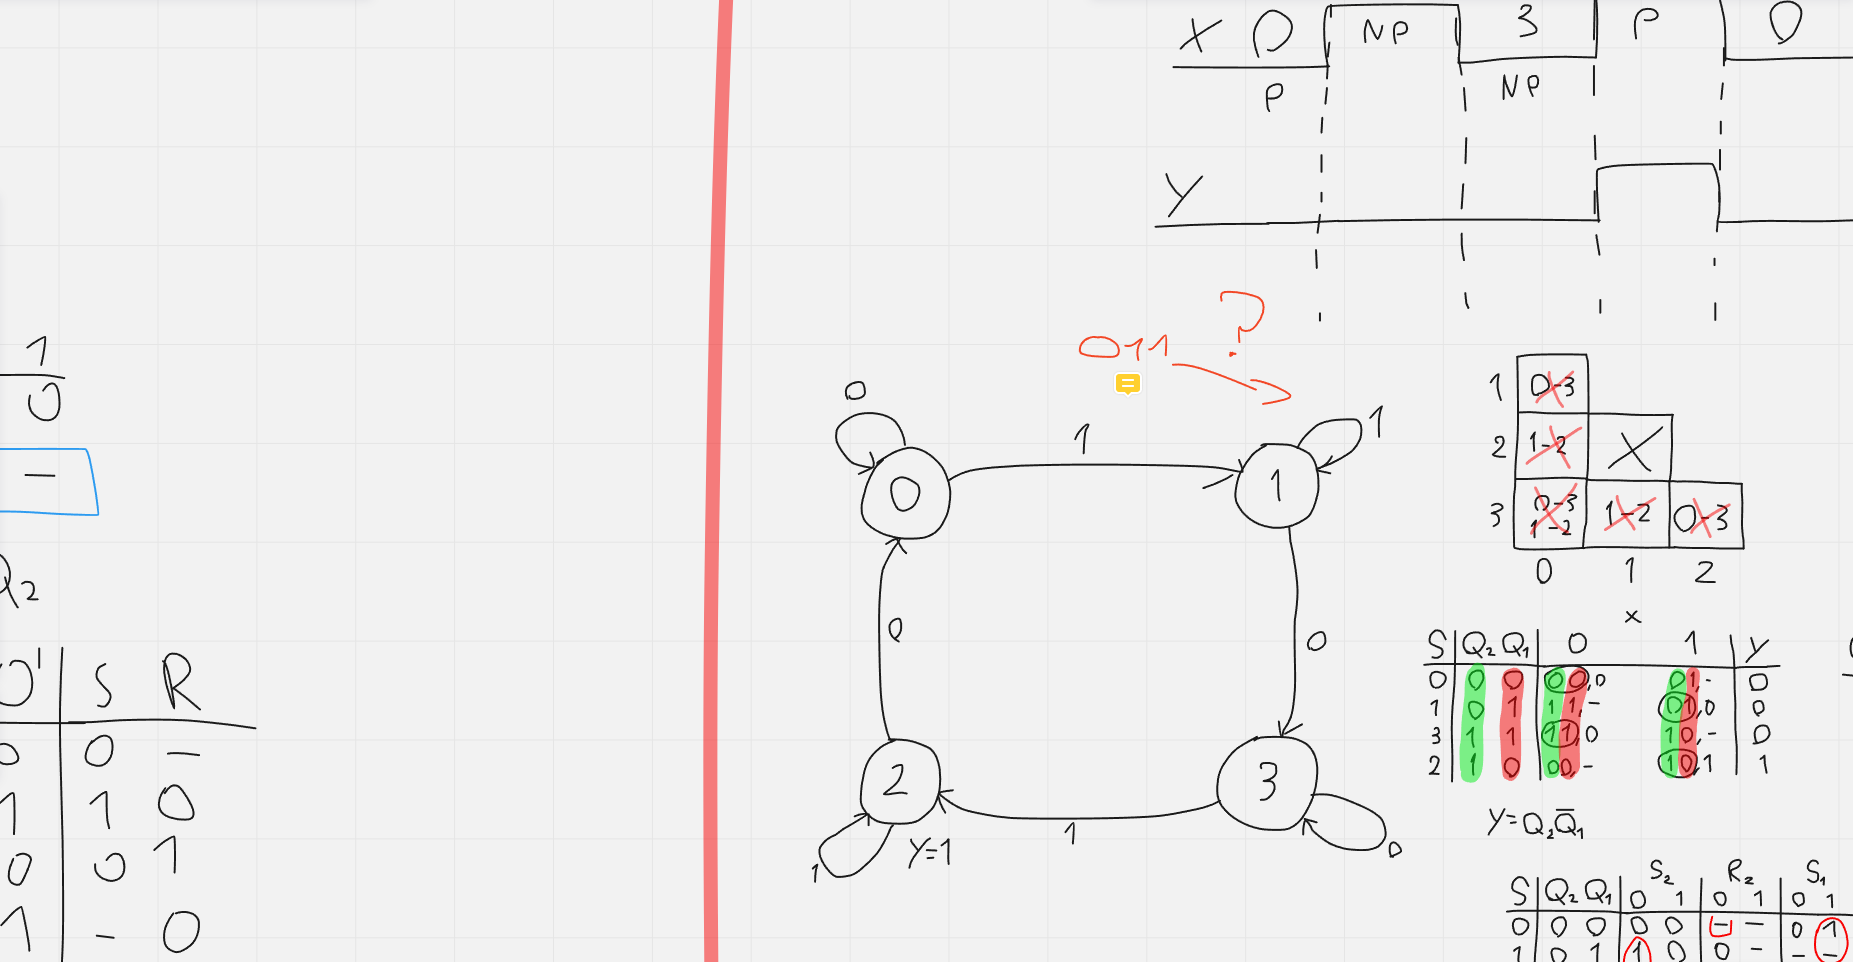 1
0
—
Q₂
Q' S R
0 0 —
1 1 0
0 0 1
1 - 0
X 0 NP 3 P 0
P NP
Y
011 ?
0
1
1
0
1
0
0
2
3
1
Y=1
1
0
1 0-3
2 1-2 X
3 0-3 1-2 0-3
1-2
0 1 2
x
S Q₂ Q₁ 0 1 Y
0 0 0 00,0 01,- 0
1 0 1 11,- 01,0 0
3 1 1 11,0 10,- 0
2 1 0 00,- 10,1 1
Y=Q₂Q̅₁
S₂ R₂ S₁
S Q₂ Q₁ 0 1 0 1 0 1
0 0 0 0 0 - - 0 1
1 0 1 1 0 0 - - -